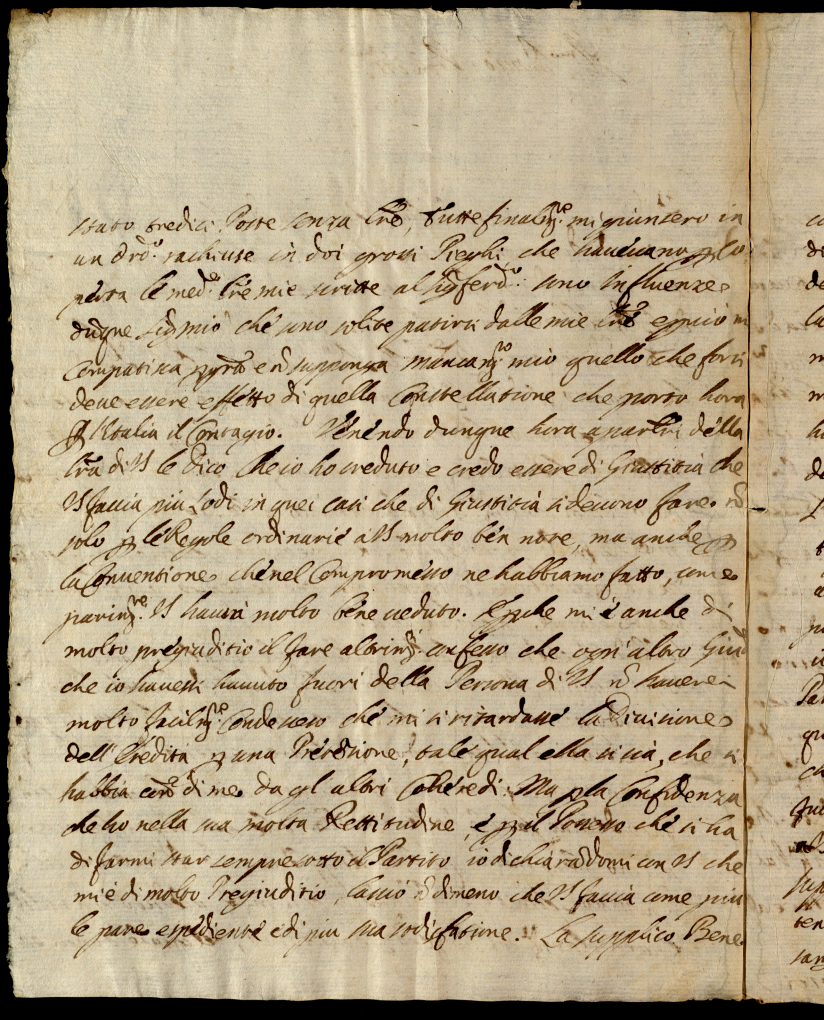 stato tredici Poste senza lre, tutte finalmte mi giunsero in
un ordo rachiuse in doi grossi Pieghi, che haueuano
persa le medme lre mie scritte al Sigr ferdo: sono Influenze
dunque Sigr mio che sono solite patirsi dalle mie lre
Compatisca pertto e nō supponga mancamto mio quello che forsi
deue essere effetto di quella Constellatione che porto hora
p l'Italia il Contagio. Venendo dunque hora a parlar della
lra di VS le dico che io ho creduto e credo essere di Giustitia che
VS faccia piu Lodi in quei casi che di Giustitia si deuono fare. nō
solo p le Regole ordinarie a VS molto ben note, ma anche p
la Conuentione che nel Compromesso ne habbiamo fatto, come
parimte VS haurà molto bene ueduto. E che mi è anche di
molto pregiuditio il fare altrimti confesso che ogn'altro Giud
che io hauessi hauuto fuori della Persona di VS nō hauerei
molto facilmte Condesceso che mi si ritardasse la Diuisione
dell'Eredità p una Pretensione, tale qual ella si sia, che si
habbia contro di me da gl'altri Coheredi. Ma p la Confidenza
che ho nella sua molta Rettitudine, e p il Possesso che si ha
di farmi star sempre sotto il Partito io dichiarādomi con VS che
mi è di molto Pregiuditio, lascio nōdimeno che VS faccia come piu
le pare espediente e di piu sua sodisfatione. La supplico Bene